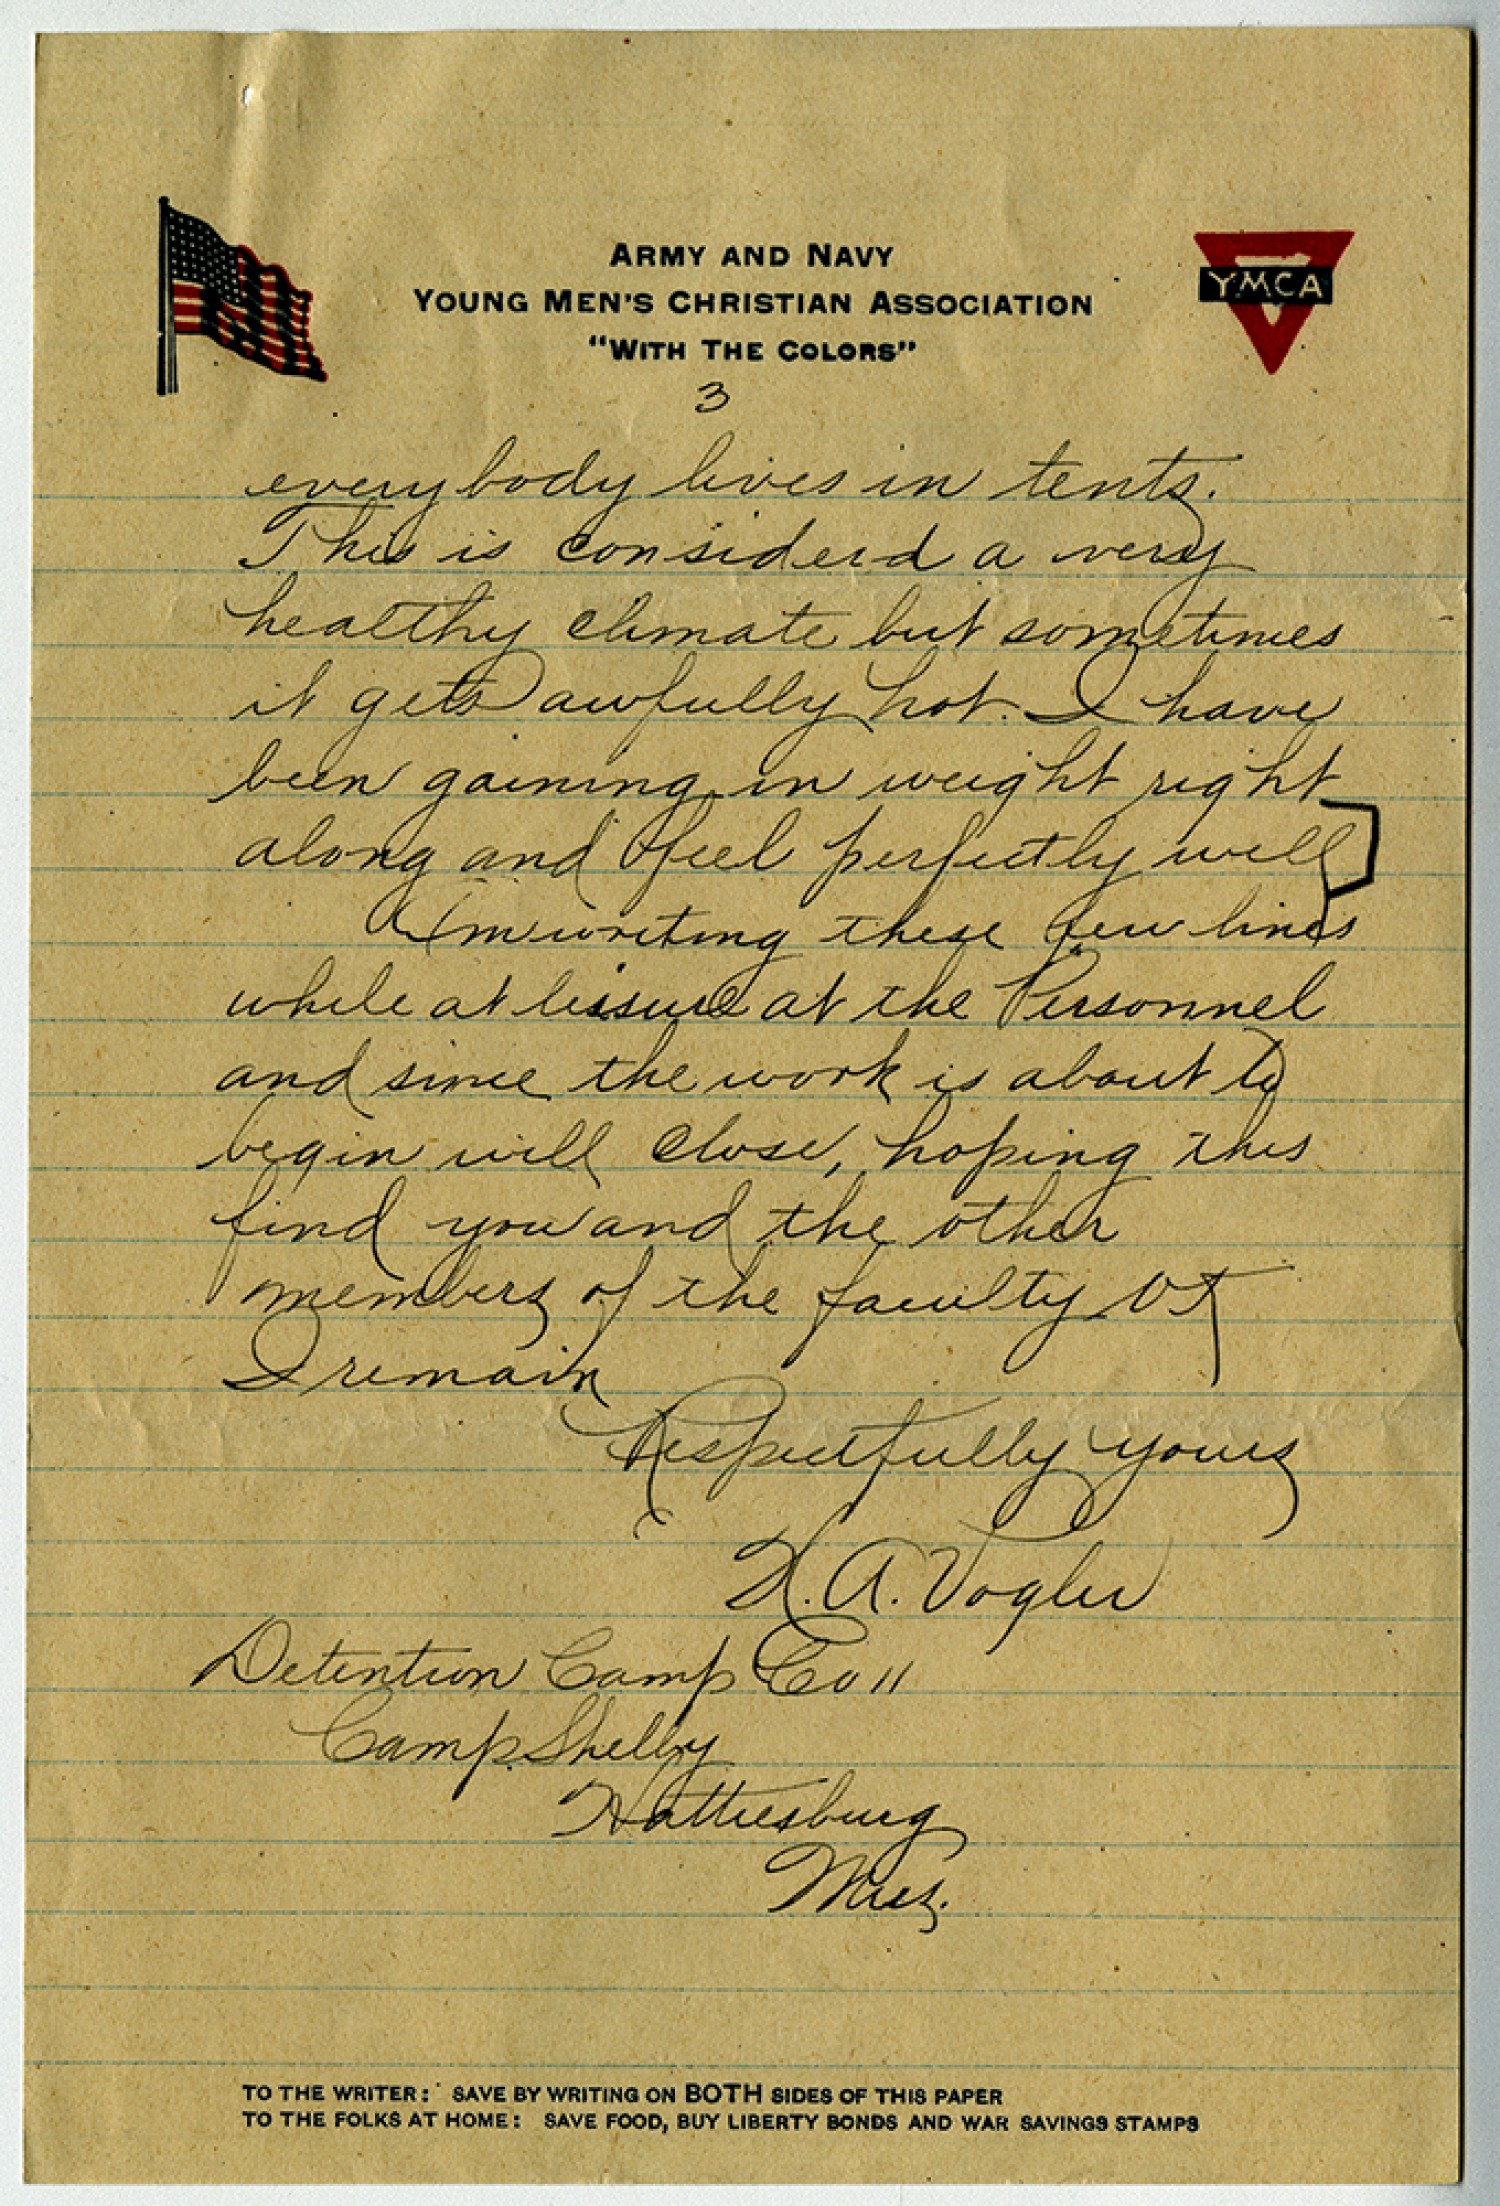 ARMY AND NAVY
YOUNG MEN'S CHRISTIAN ASSOCIATION
"WITH THE COLORS"
YMCA
3
everybody lives in tents.
This is considerd a very
healthy climate but sometimes
it gets awfully hot. I have
been gaining in weight right
along and feel perfectly well
Am writing these few lines
while at leissure at the Personnel
and since the work is about to
begin will close, hoping this
find you and the other
members of the faculty
I remain
Respectfully yours
A. Vogler
Detention Camp Co 11
Camp Shelby
Hattiesburg
Miss.
TO THE WRITER: SAVE BY WRITING ON BOTH SIDES OF THIS PAPER
TO THE FOLKS AT HOME: SAVE FOOD, BUY LIBERTY BONDS AND WAR SAVINGS STAMPS